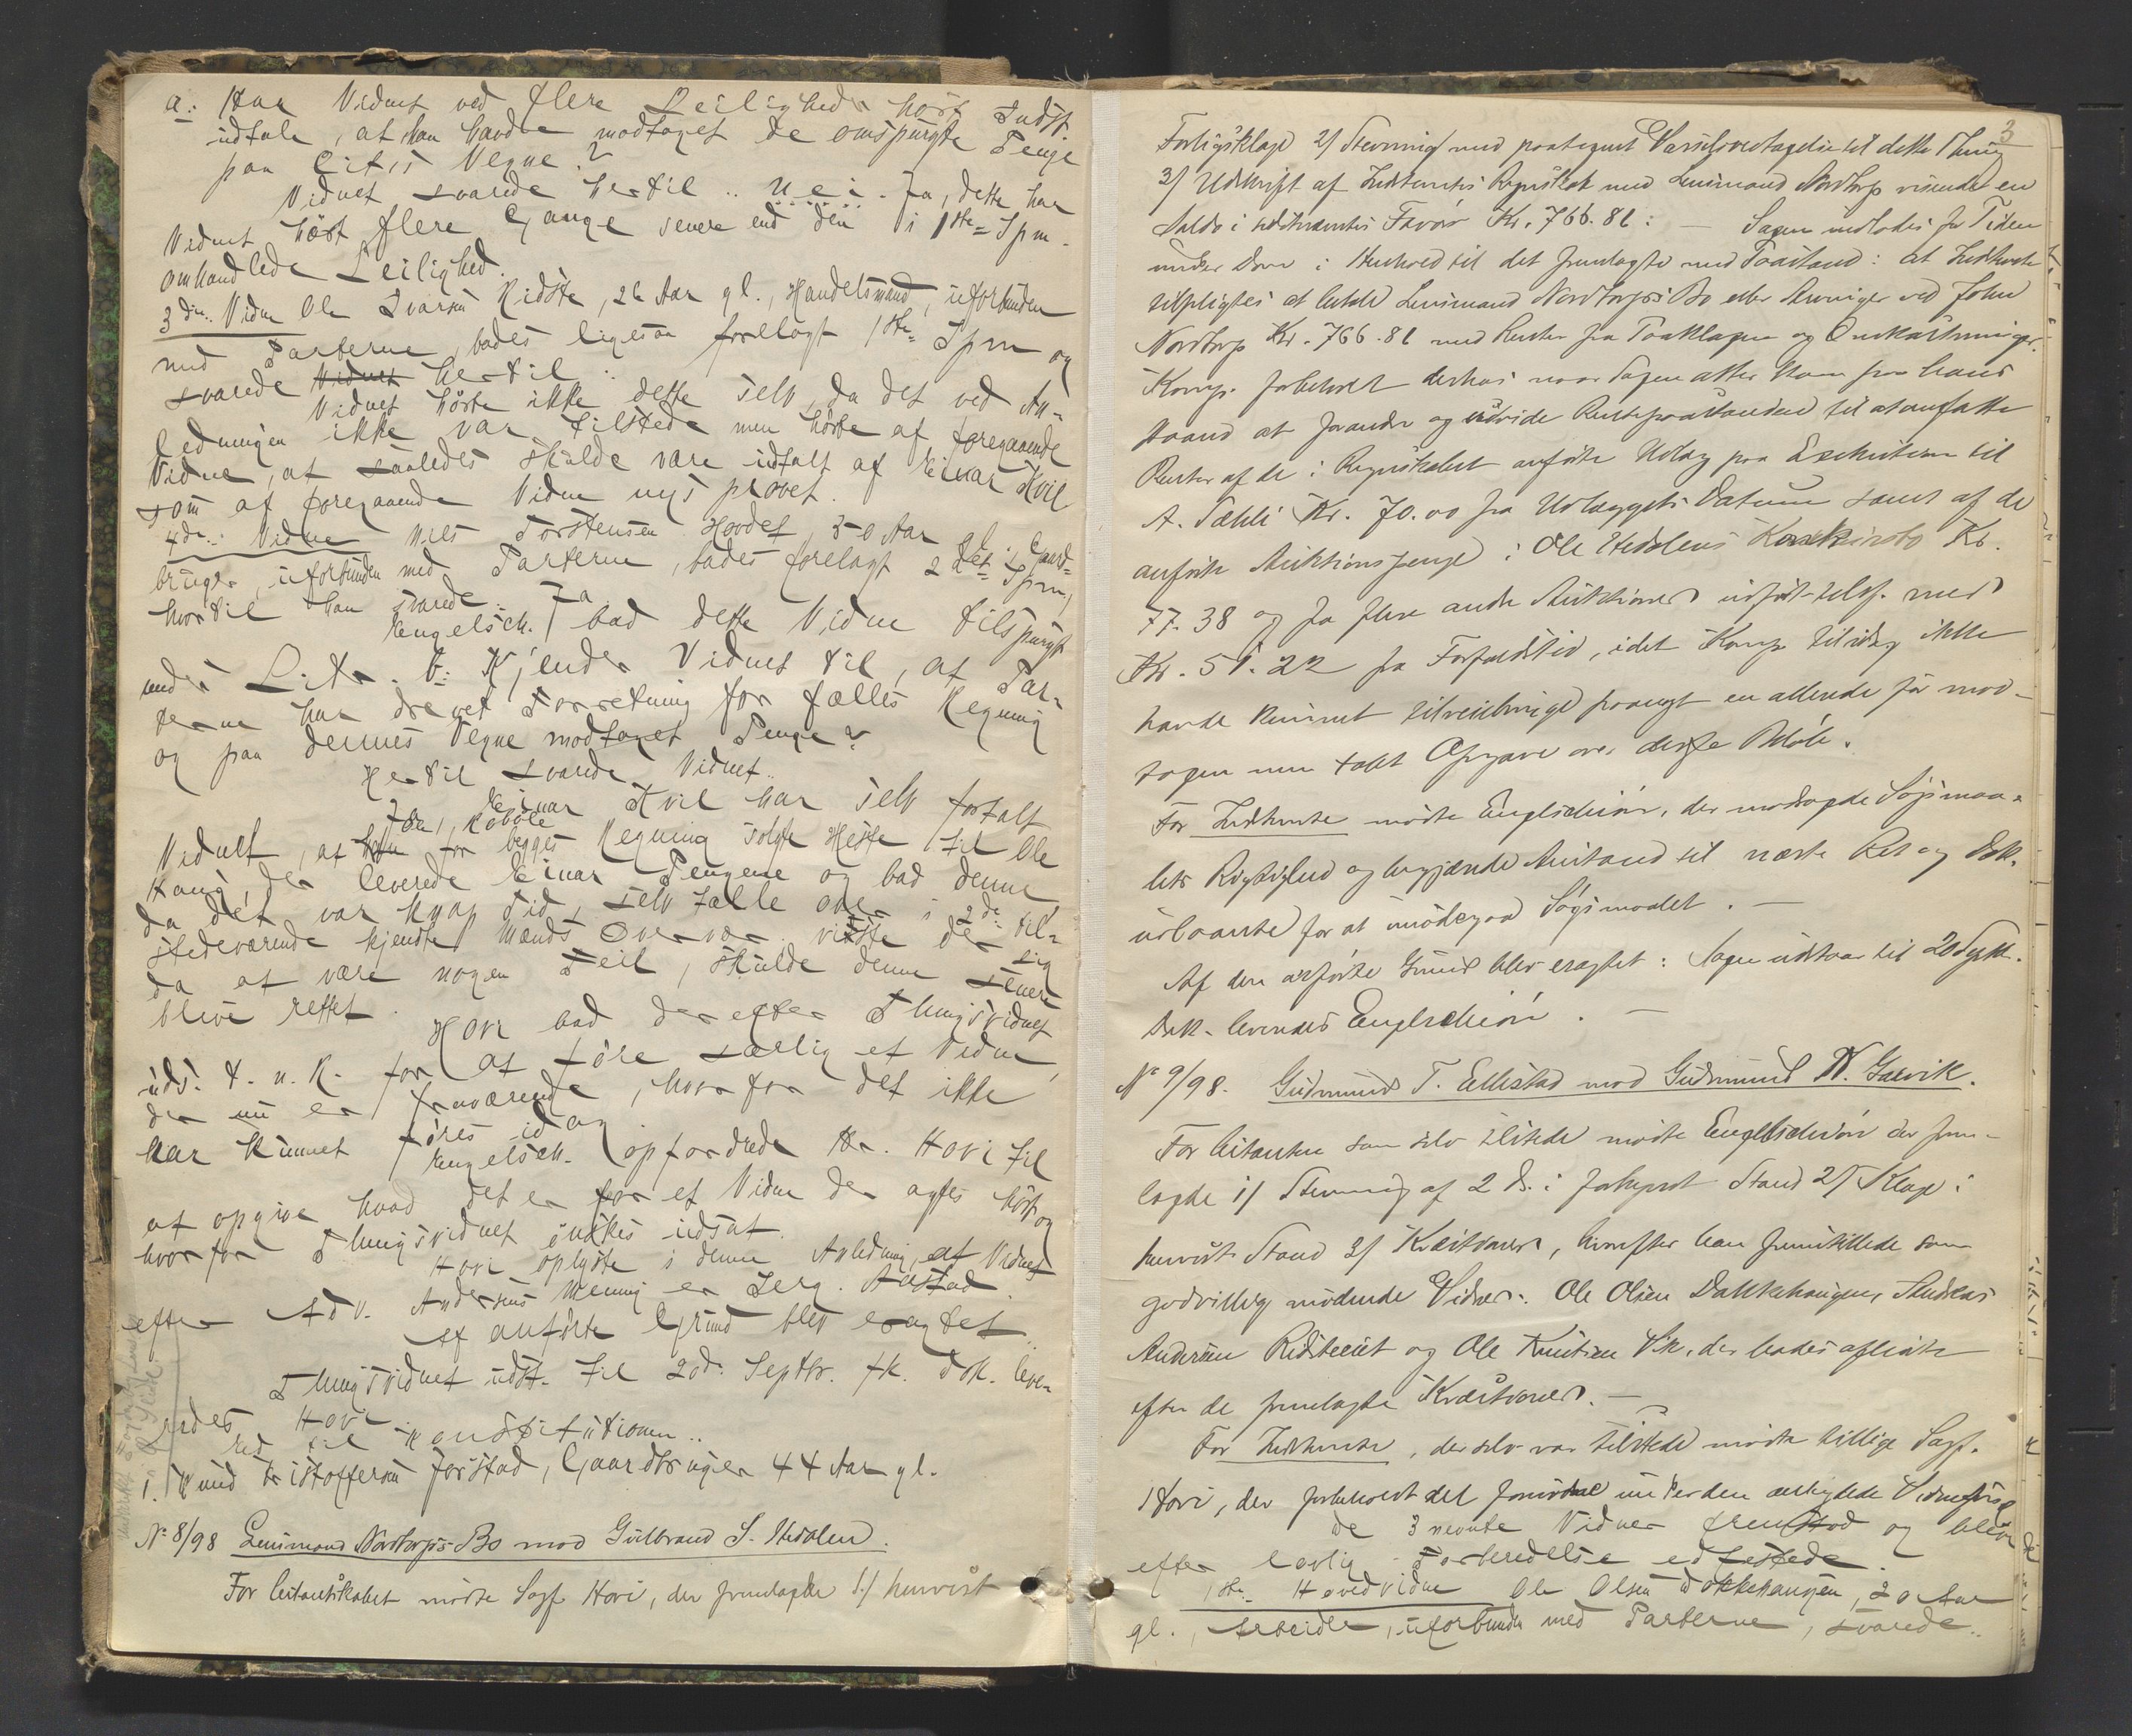 a: Har Vidnet ved flere Leiligheder hørt Indst.
udtale, at han havde modtaget de omspurgte Penge
paa Citis Vegne?
Vidnet svarede hertil: Nei. Ja, dette har
Vidnet hørt flere Gange senere end den i 1ste Spm.
omhandlede Leilighed.
3die Vidne Ole Ivarsen Ridste, 26 Aar gl., Handelsmand, uforbunden
med Parterne, bades ligesaa forelagt 1ste Spm og
svarede Vidnet hertil:
Vidnet hørte ikke dette selv, da det ved An-
ledningen ikke var tilstede men hørte af foregaaende
Vidne, at saaledes skulde være udtalt af Einar Kvil
som af foregaaende Vidne nys prøvet.
4de Vidne Nils Torstensen Hovdet, 50 Aar gl. Gaard-
bruger, uforbunden med Parterne, bades forelagt 2det Spm,
hvortil han svarede Ja.
Engelsch. bad dette Vidne tilspurgt
under Litr. b: Kjender Vidnet til, at Par-
terne har drevet Forretning for fælles Regning
og paa dennes Vegne modtaget Penge?
Hertil svarede Vidnet:
Ja, Einar Kvil har selv fortalt
Vidnet, at han for begges Regning solgte Heste til Ole
Haug, der leverede Einar Pengene og bad denne
da det var knap Tid, selv tælle over i 2de til-
stedeværende kjendte Mænds Overvær. viste der sig
da at være nogen Feil, skulde denne senere
blive rettet.
Hovi bad derefter Thingsvidnet
uds. t. n. R. for at føre særlig et Vidne,
der nu er fraværende, hvorfor det ikke
har kunnet føres idag.
Engelsch. opfordrede Hr. Hovi til
at opgive hvad det er for et Vidne der agtes hørt og
hvorfor Thingsvidnet ønskes udsat.
Hovi oplyste i denne Anledning, at Vidnet
efter Adv. Andersens Mening er Serg. Aastad.
Af anførte Grund blev eragtet:
Thingsvidnet udst. til 20de Septbr. fk. Dok. leve-
redes Hovi.
Ed til Konstitutionen:
1. Knud Kristoffersen Jorstad, Gaardbruger 44 Aar gl.
No 8/98 Lensmand Nordtorps Bo mod Gulbrand S. Hedalen.
For Citantskabet mødte Sagf. Hovi, der fremlagde 1/ henvist
3
Forligsklage 2/ Stevning med paategnet Varselsvedtagelse til dette Thing
3/ Udskrift af Indstevntes Regnskab med Lensmand Nordtorp visende en
Saldo i sidstnævntes Favør Kr. 766.81: — Sagen indlodes fra Tiden
under Dom i Henhold til det fremlagte med Paastand: at Indstevnte
tilpligtes at betale Lensmand Nordtorps Bo eller Arvinger ved John
Nordtorp Kr. 766.81 med Renter fra Paaklagen og Omkostninger.
Komp. forbeholdt derhos naar Sagen atter kom fra hans
Haand at forandre og udvide Rentepaastanden til at omfatte
Renter af de i Regnskabet anførte Udlæg paa Exekution til
A. Sæhli Kr. 70.00 fra Udlæggets Datum samt af de
anførte Auktionspenge i Ole Hedalens Konkursbo Kr.
77.38 og fra flere andre Auktioner udført tils. med
Kr. 51.22 fra Forfaldstid, idet Komp. tilidag ikke
havde kunnet tilveiebringe
Opgave over disse Beløb.
For Indstevnte mødte Englschiøn, der modsagde Søgsmaa-
lets Rigtighed og begjærede Anstand til næste Ret og Dok.
udlaante for at imødegaa Søgsmaalet. —
Af den anførte Grund blev eragtet: Sagen udstaar til 20 Septbr.
Dok. leveredes Englschiøn. —
No 9/98. Gudmund T. Ellestad mod Gudmund K. Garvik.
For Citanten som selv tilstede mødte Englschiøn der frem-
lagde 1/ Stevning af 2 ds. i forkyndt Stand 2/ Klage i
henvist Stand 3/ Kvæstioner, hvorefter han fremstillede som
godvillig mødende Vidner: Ole Olsen Dokkehaugen, Andreas
Andersen Ridsteeiet og Ole Knutsen Vik, der bades afhørte
efter de fremlagte Kvæstioner. —
For Indstevnte, der selv var tilstede mødte tillige Sagf.
Hovi, der forbeholdt det fornødne under den anstundede Vidneførsel
de 3 nevnte Vidner fremstod og blev
efter lovlig Forberedelse edfestede.
1ste Hovedvidne Ole Olsen Dokkehaugen, 20 Aar
gl., Arbeider, uforbunden med Parterne, svarede: